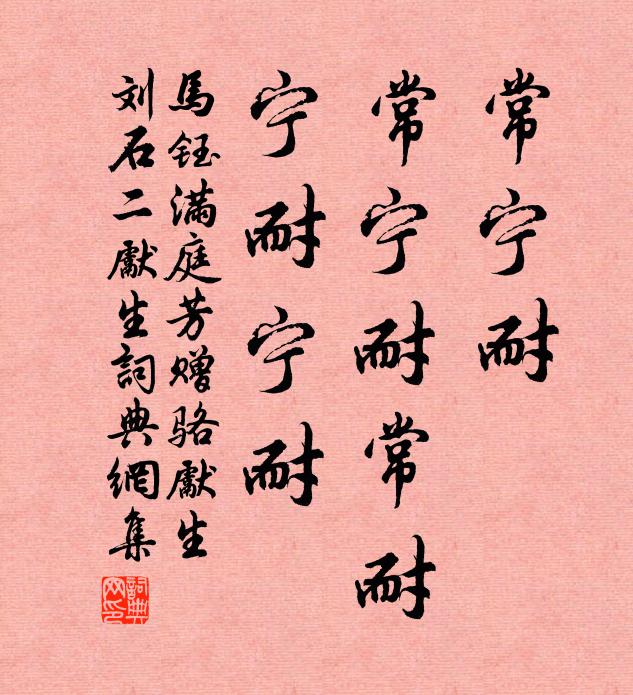 常宁耐
常宁耐常耐
宁耐宁耐
馬鈺滿庭芳赠骆獻生
刘石二獻生詞典網集
詞典网印